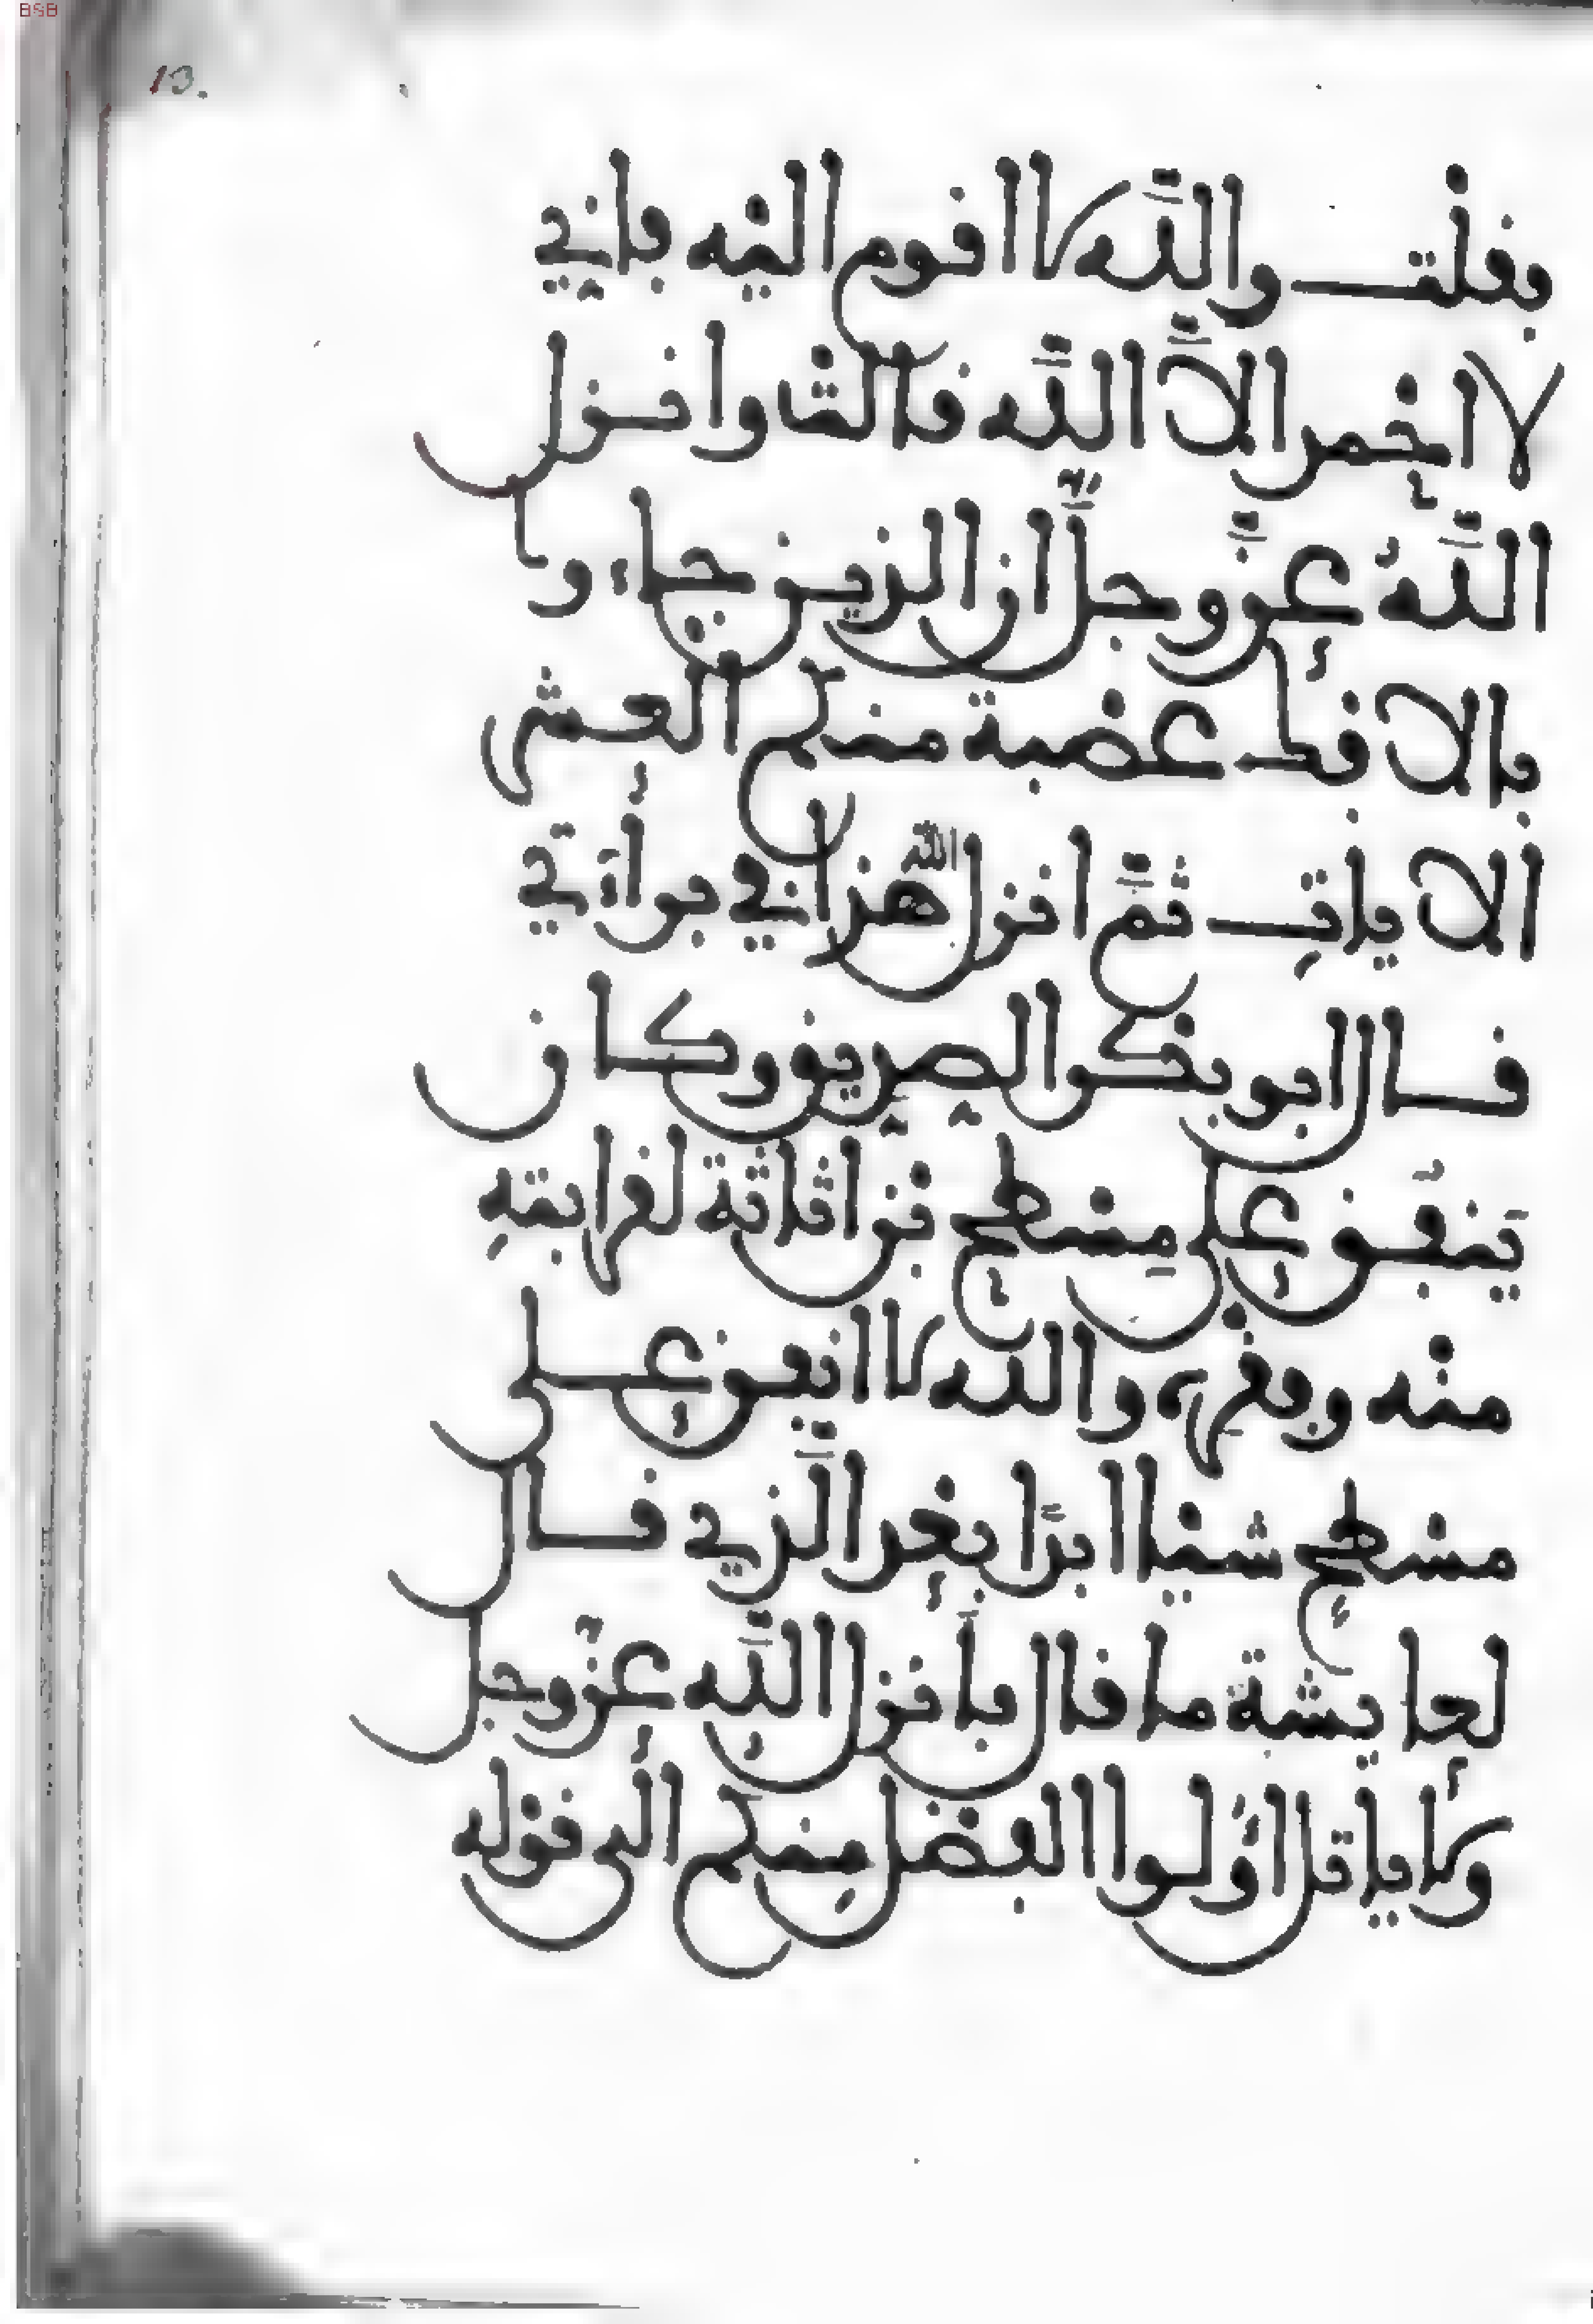 BSB
13.
فقلت والله لا اقوم اليه فاني
لا احمد الا الله قالت وانزل
الله عز وجل ان الذين جاءوا
بالافك عصبة منكم العشر
الايات ثم انزل الله هذا في براءتي
قال ابو بكر الصديق وكان
ينفق على مسطح بن اثاثة لقرابته
منه وفقره والله لا انفق على
مسطح شيئا ابدا بعد الذي قال
لعايشة ما قال فأنزل الله عز وجل
ولا ياتل اولوا الفضل منكم الى قوله